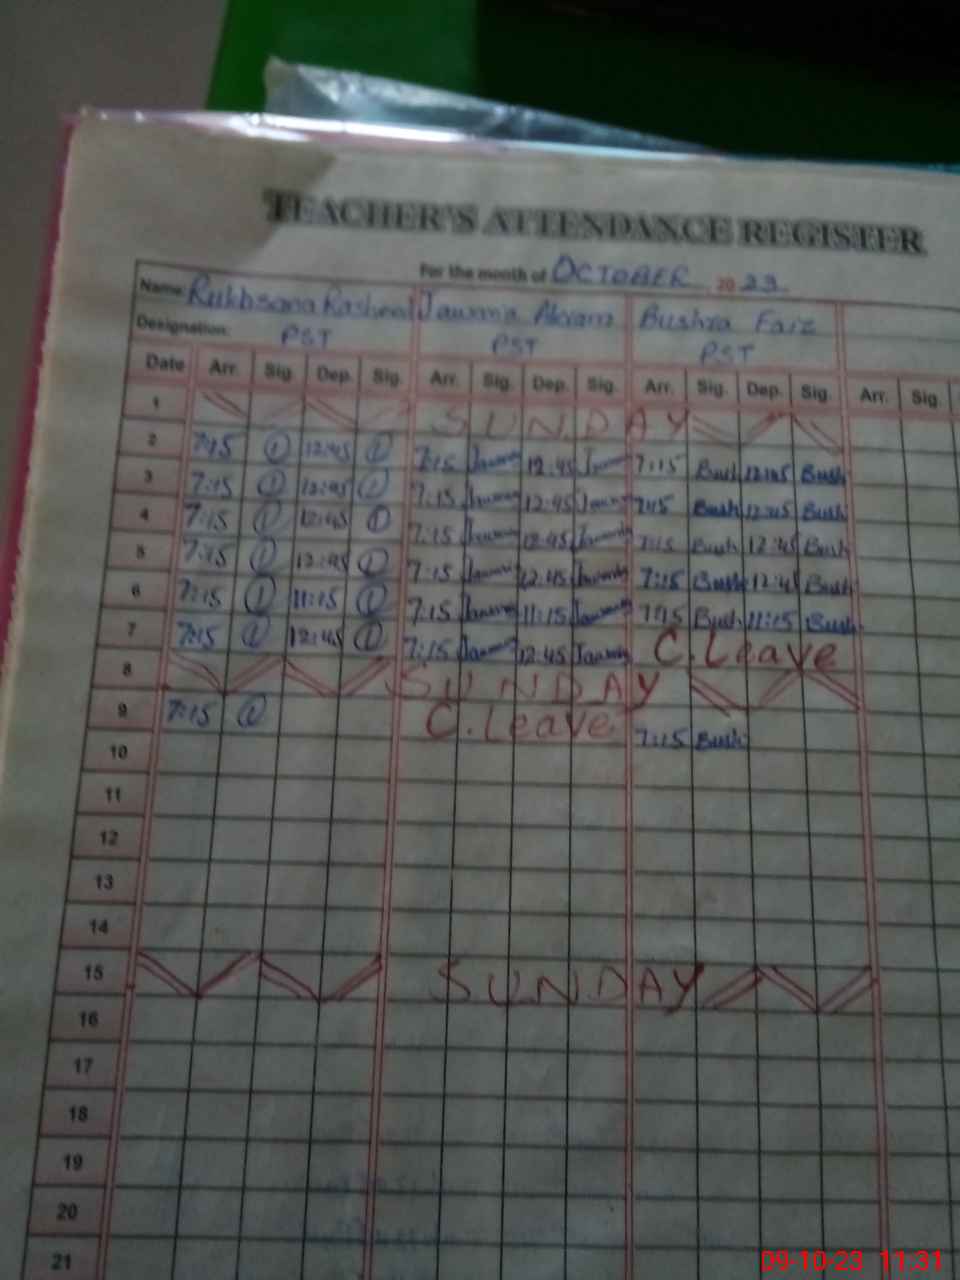 TEACHER'S ATTENDANCE REGISTER
For the month of OCTOBER 2023
Name: Rukhsana Rasheed Jawaria Akram Bushra Faiz
Designation: PST PST PST
Date Arr. Sig. Dep. Sig. Arr. Sig. Dep. Sig. Arr. Sig. Dep. Sig. Arr. Sig.
1 SUNDAY
2 7:15 12:45 7:15 12:45 7:15 Bush 12:45 Bush
3 7:15 12:45 7:15 12:45 7:15 Bush 12:45 Bush
4 7:15 12:45 7:15 12:45 7:15 Bush 12:45 Bush
5 7:15 12:45 7:15 12:45 7:15 Bush 12:45 Bush
6 7:15 11:15 7:15 11:15 7:15 Bush 11:15 Bush
7 7:15 12:45 7:15 12:45 C.Leave
8 SUNDAY
9 7:15 C.Leave 7:15 Bush
10
11
12
13
14
15 SUNDAY
16
17
18
19
20
21
09-10-23 11:31